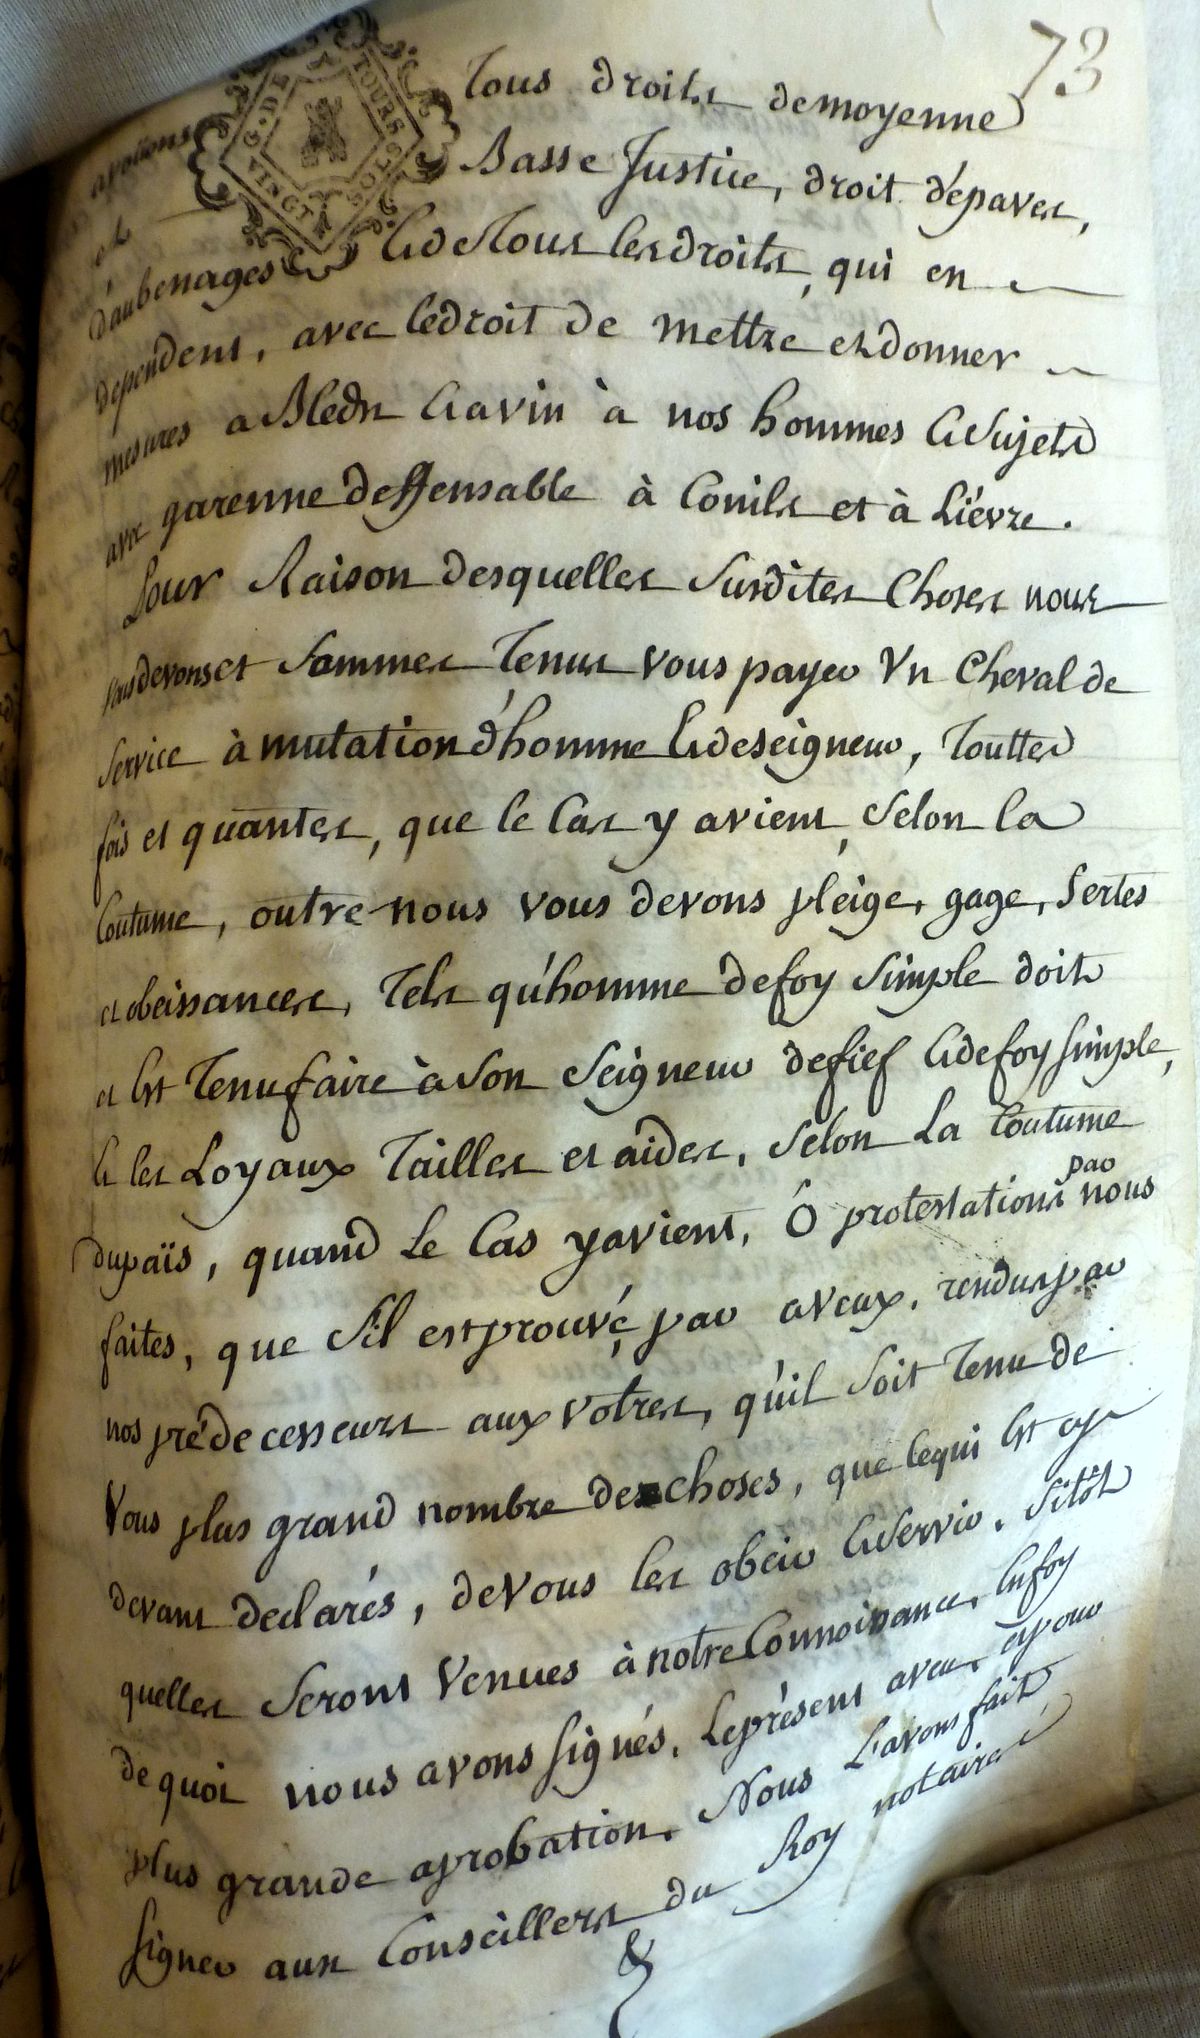 73
G. DE TOURS
VINGT SOLS
avoüons Tous droits de moyenne
et Basse Justice, droit d'épaves,
d'aubenages Et de Tous les droits, qui en
dependent, avec le droit de mettre et donner
mesures a Bleds Et a vin à nos hommes Et Sujets
avec garenne deffensable à Conils et à Liévre.
Pour Raison desquelles Susdites Choses nous
vous devons et Sommes Tenus vous payer Un Cheval de
Service à mutation d'homme Et de seigneur, Touttes
fois et quantes, que le Cas y avient, Selon la
Coutume, outre nous vous devons pléige, gage, Sertes
et obeissances, Tels qu'homme de foy Simple doit
et Est Tenu faire à Son Seigneur de fief Et de foy Simple,
Et les Loyaux Tailles et aides, Selon La Coutume
du païs, quand Le Cas y avient, O protestations par nous
faites, que S'il est prouvé par aveux, rendus par
nos prédecesseurs aux votres, qu'il Soit Tenu de
Vous plus grand nombre de choses, que Ce qui Est cy
devant declarés, de Vous les obeir Et Servir, Sitôt
quelles Seront Venues à notre Connoissance, En foy
de quoi nous avons Signés, Le présent aveu, et pour
plus grande aprobation, Nous L'avons fait
Signer aux Conseillers du Roy notaire
&